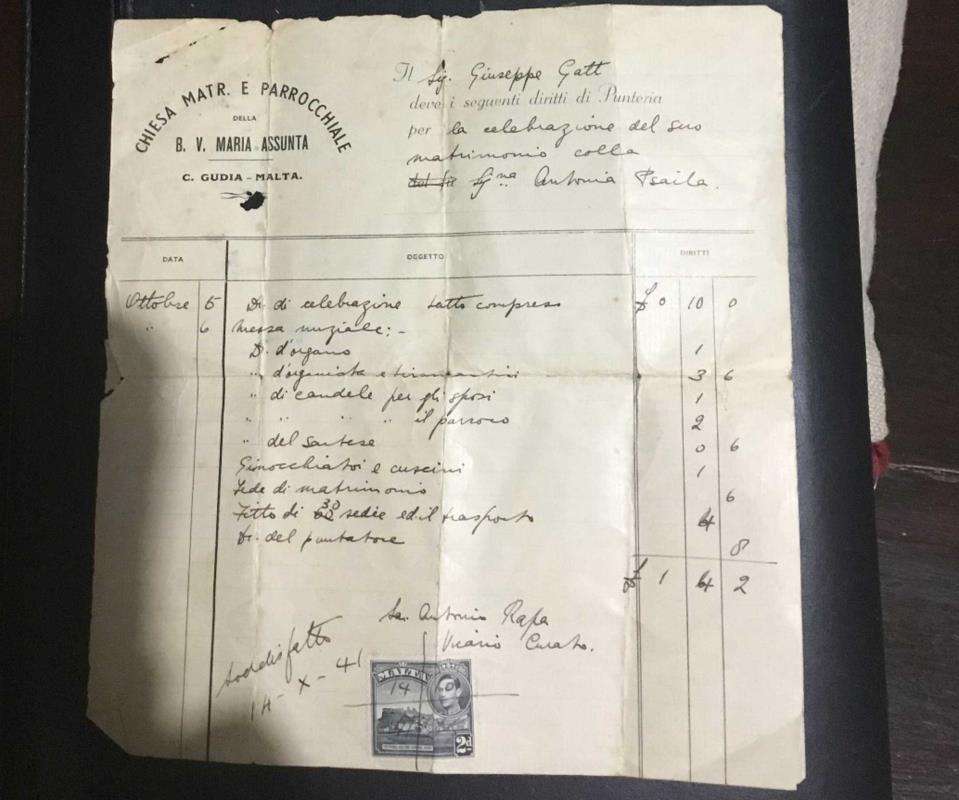 CHIESA MATR. E PARROCCHIALE
DELLA
B. V. MARIA ASSUNTA
C. GUDIA - MALTA.
Il Sig. Giuseppe Gatt
deve i seguenti diritti di Punteria
per la celebrazione del suo
matrimonio colla
Signa Antonia Psaila.
DATA OGGETTO DIRITTI
Ottobre 5 Dr. di celebrazione tutto compreso £ 0 10 0
" 6 Messa nuziale: -
D. d'organo 1
" d'organista e tiramantici 3 6
" di candele per gli sposi 1
" " " " il parroco 2
" del 0 6
Ginocchiatoi e cuscini 1
Fede di matrimonio 6
Fitto di 30 sedie ed il trasporto 4
Dr. del puntatore 8
£ 1 4 2
Sac. Antonio Rapa
Vicario Curato.
Soddisfatto
14 - X - 41
MALTA
14
2d